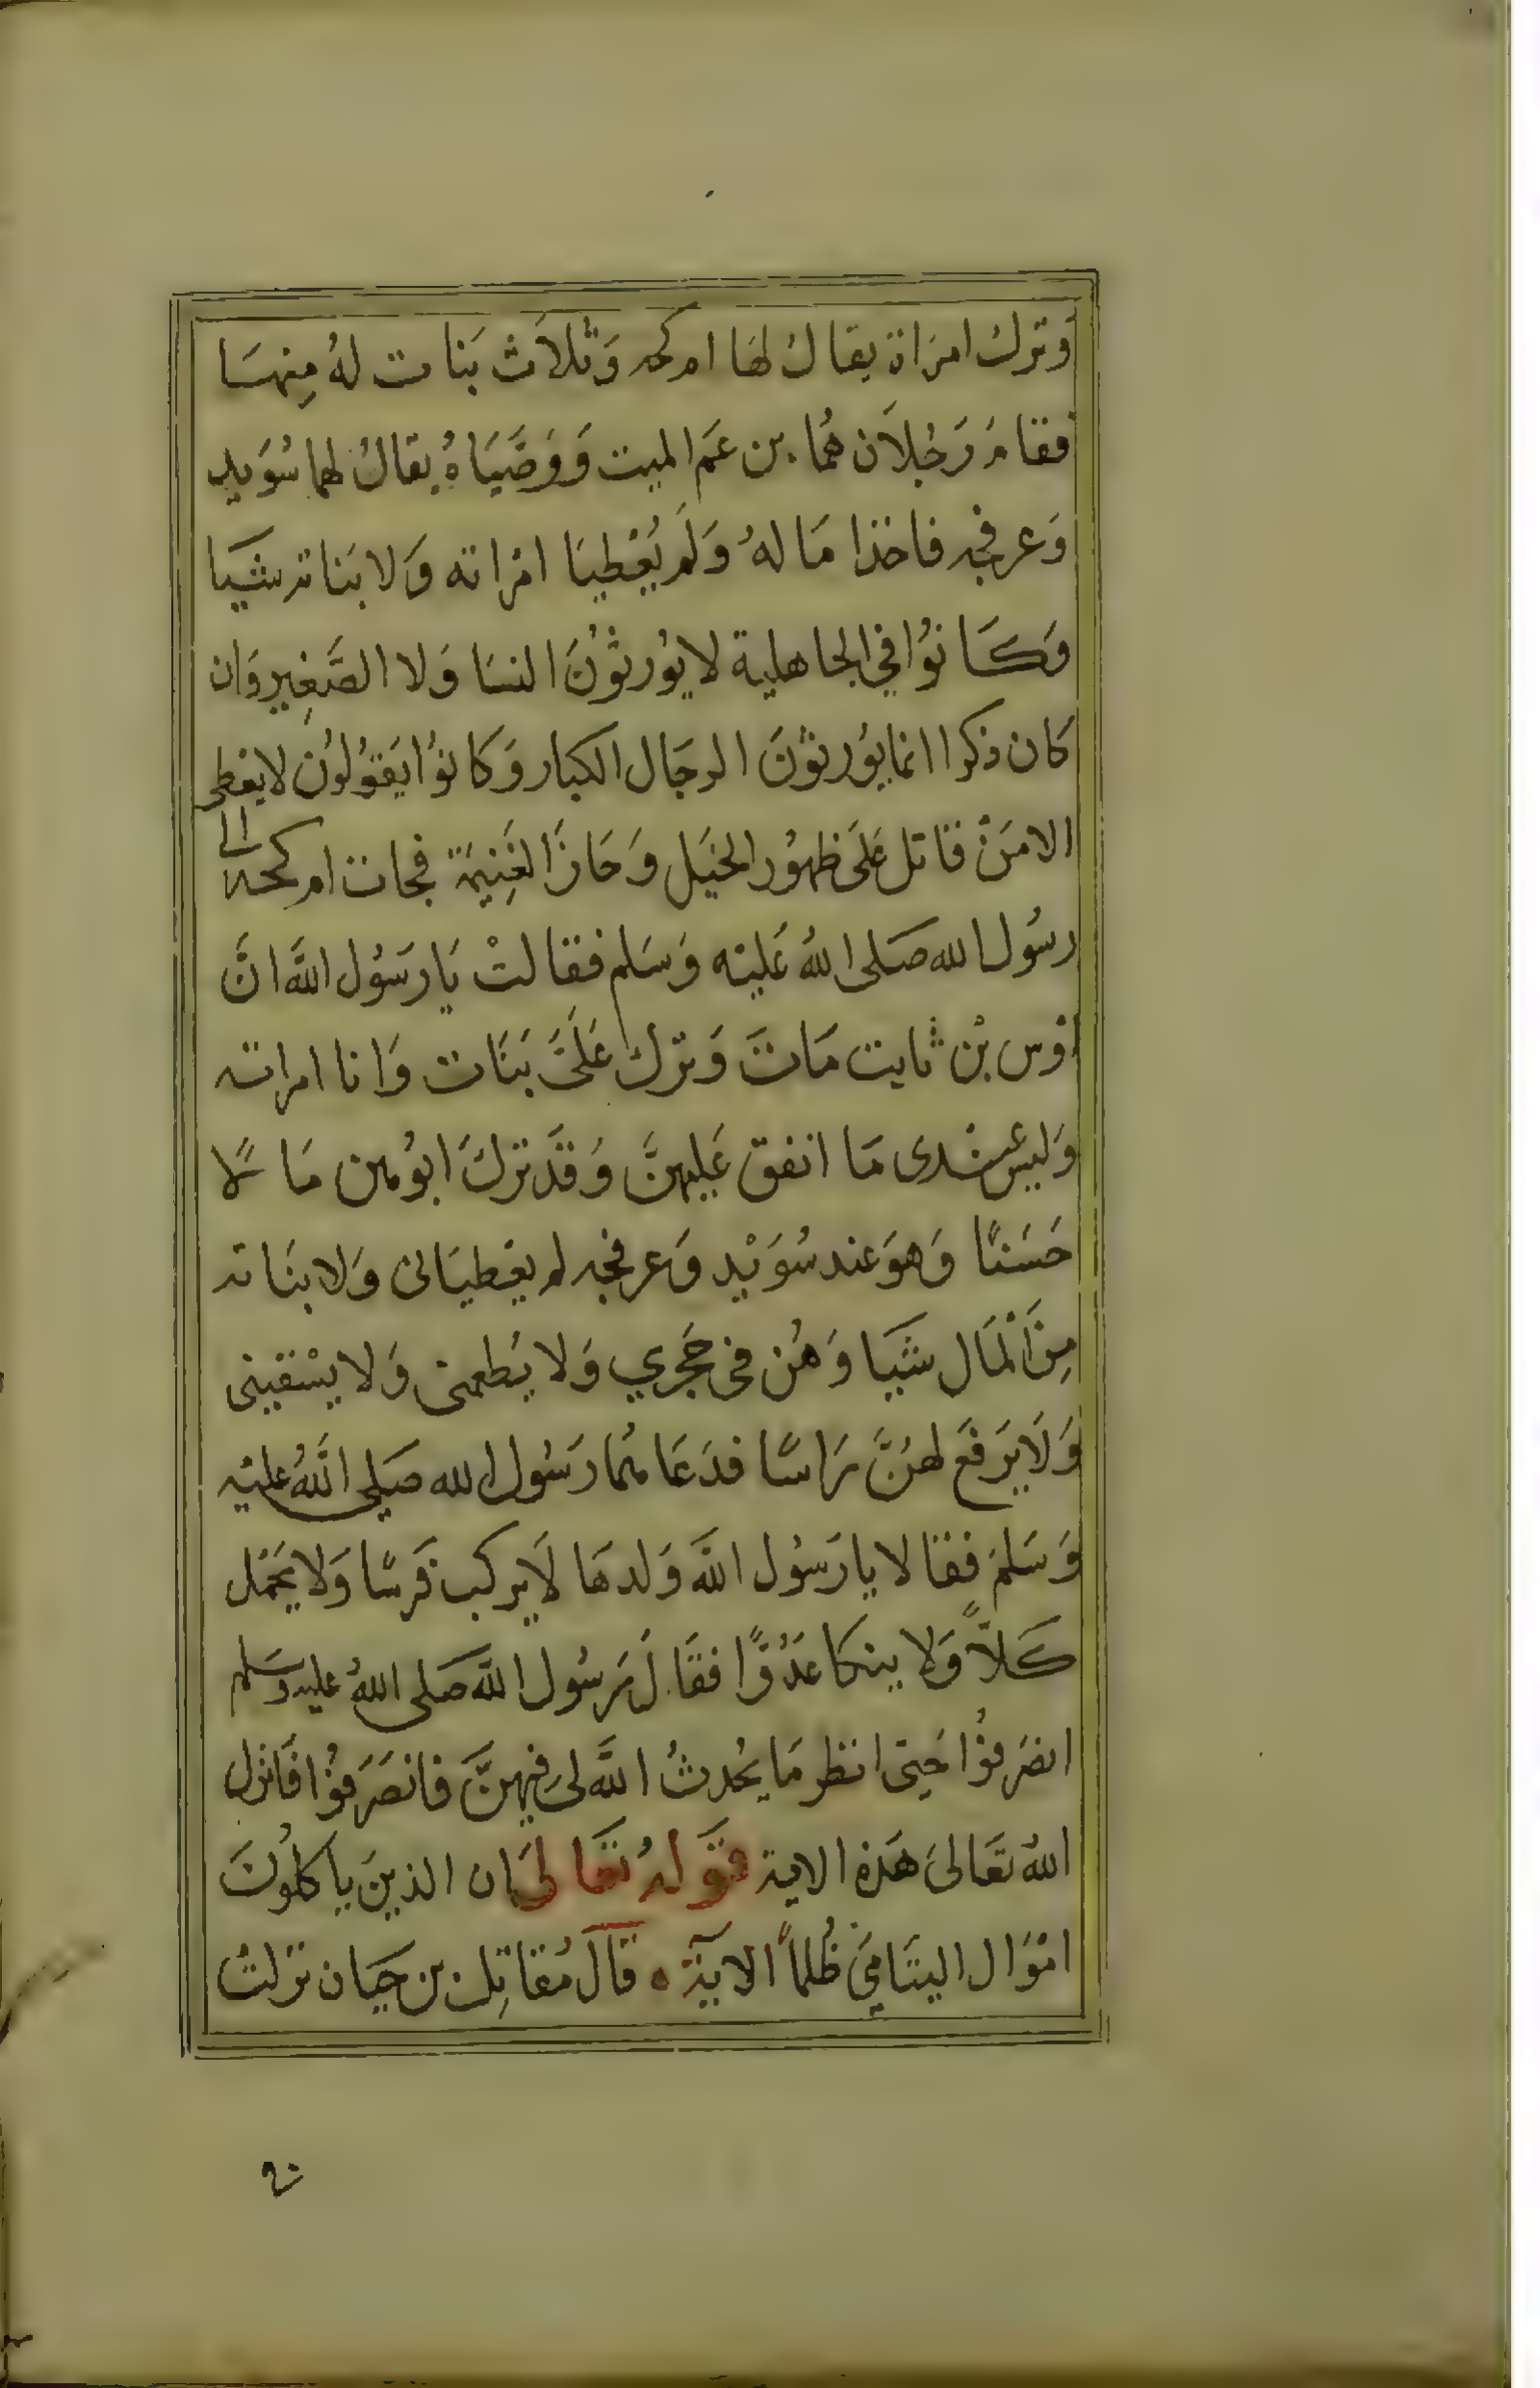 وَترك امرَاة يقال لهَا ام كحه وَثلاَث بَنات لهُ مِنهَا
فقامَ رَجُلاَن هُما بن عَم الميت وَوَصَّيَاهُ يقالُ لهما سُوَيد
وَعرفجه فاخذا مَا لهُ وَلَم يُعْطيَا امْراته وَلا بَناته شَيا
وَكَانوُا في الجاهلية لا يوُرثوُنَ النسَا وَلا الصَّغِير وَان
كان ذكرا انما يوُرثوُنَ الرجَال الكبار وَكانوُا يَقوُلوُن لا يعطى
الا مَنْ قاتل عَلىَ ظهوُر الخيَل وَحَازَ الغَنِيمَة فجات ام كحه الى
رسُول الله صَلى اللهُ عَليْه وَسَلم فقالتْ يَا رَسُول اللَّه انَّ
اوْس بْن ثابت مَاتَ وَترك عَلَىَّ بَنَات وَانا امراته
وَليس عندى مَا انفق عَليهنَّ وَقَد تركَ ابوُهن مَا لاً
حَسَنًا وَهوَ عند سُوَيْد وَعرفجه لم يعطيَانى وَلا بنَاته
مِنَ اْلمَال شَيَا وَهُن فى حَجَري وَلا يُطعمنى وَلا يسْقيني
وَلَا يَرفَع لهُنَّ رَاسًا فدَعَاهُما رَسُول الله صَلى اللَّهُ عليْه
وَسَلمَ فقالا يا رَسُول اللَّه وَلدهَا لَا يركب فَرسًا وَلا يَحْمل
كَلاًّ وَلا ينكا عَدُوًّا فقَالَ رَسُول اللَّه صَلى اللهُ عليه وسَلم
انصَرفوُا حَتى انظر مَا يحُدثُ اللَّه لىَ فيهنَّ فانصَرَفوُا فَانزل
اللهُ تعَالىَ هَذه الاية قوَلهُ تعَالىَ ان الذينَ ياكلوُنَ
امْوَال اليتَامىَ ظُلماً الاَيَة ه قَالَ مُقاتِل بن حيَان نزلتْ